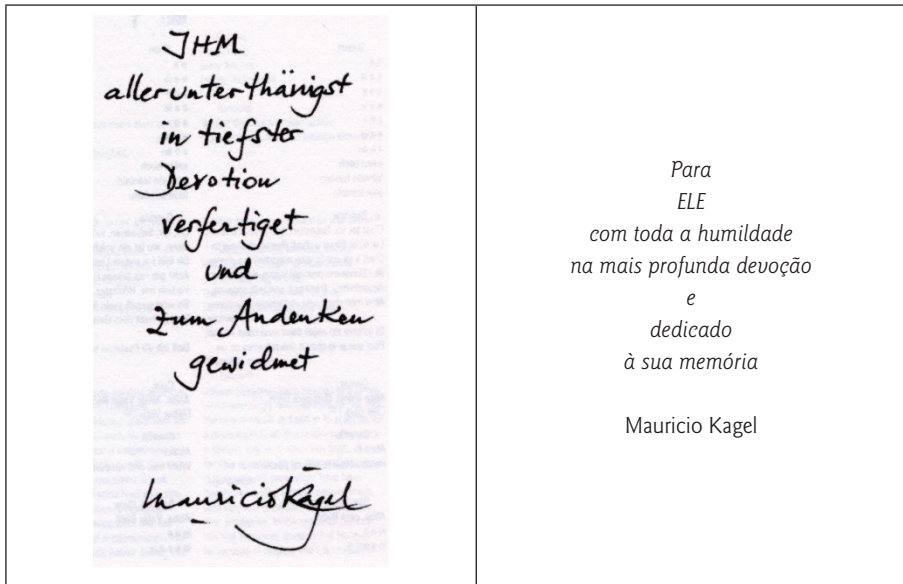 IHM
allerunterthänigst
in tiefster
Devotion
verfertiget
und
zum Andenken
gewidmet
Mauricio Kagel
Para
ELE
com toda a humildade
na mais profunda devoção
e
dedicado
à sua memória
Mauricio Kagel